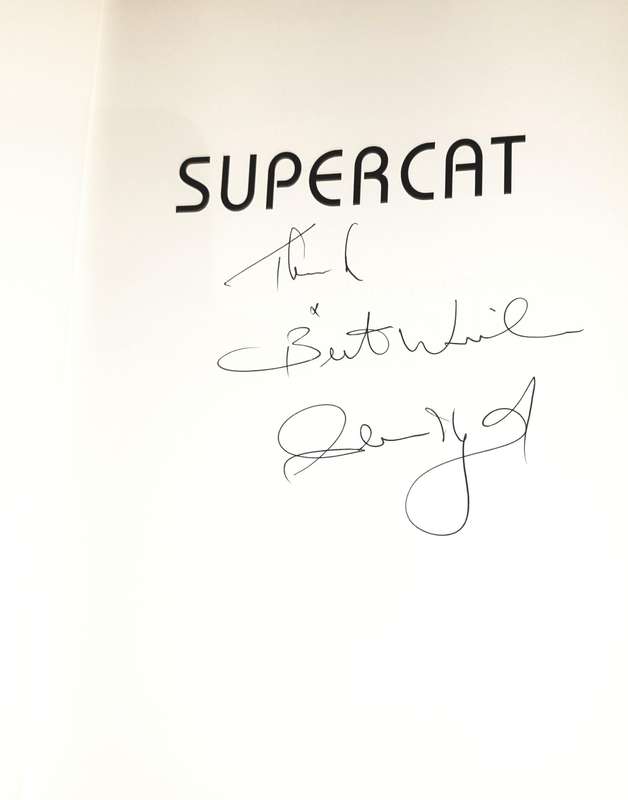 SUPERCAT
Thank
&
Best Wishes